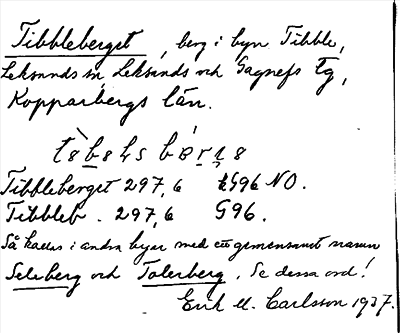 Tibbleberget, berg i byn Tibble,
Leksands sn Leksands och Gagnefs tg,
Kopparbergs län.
Tibbleberget 297,6 G96 NO.
Tibbleb. 297,6 G96.
Så kallas i andra byar med ett gemensamt namn
Selsberg och Tolerberg. Se dessa ord!
Erik M. Carlsson 1937.